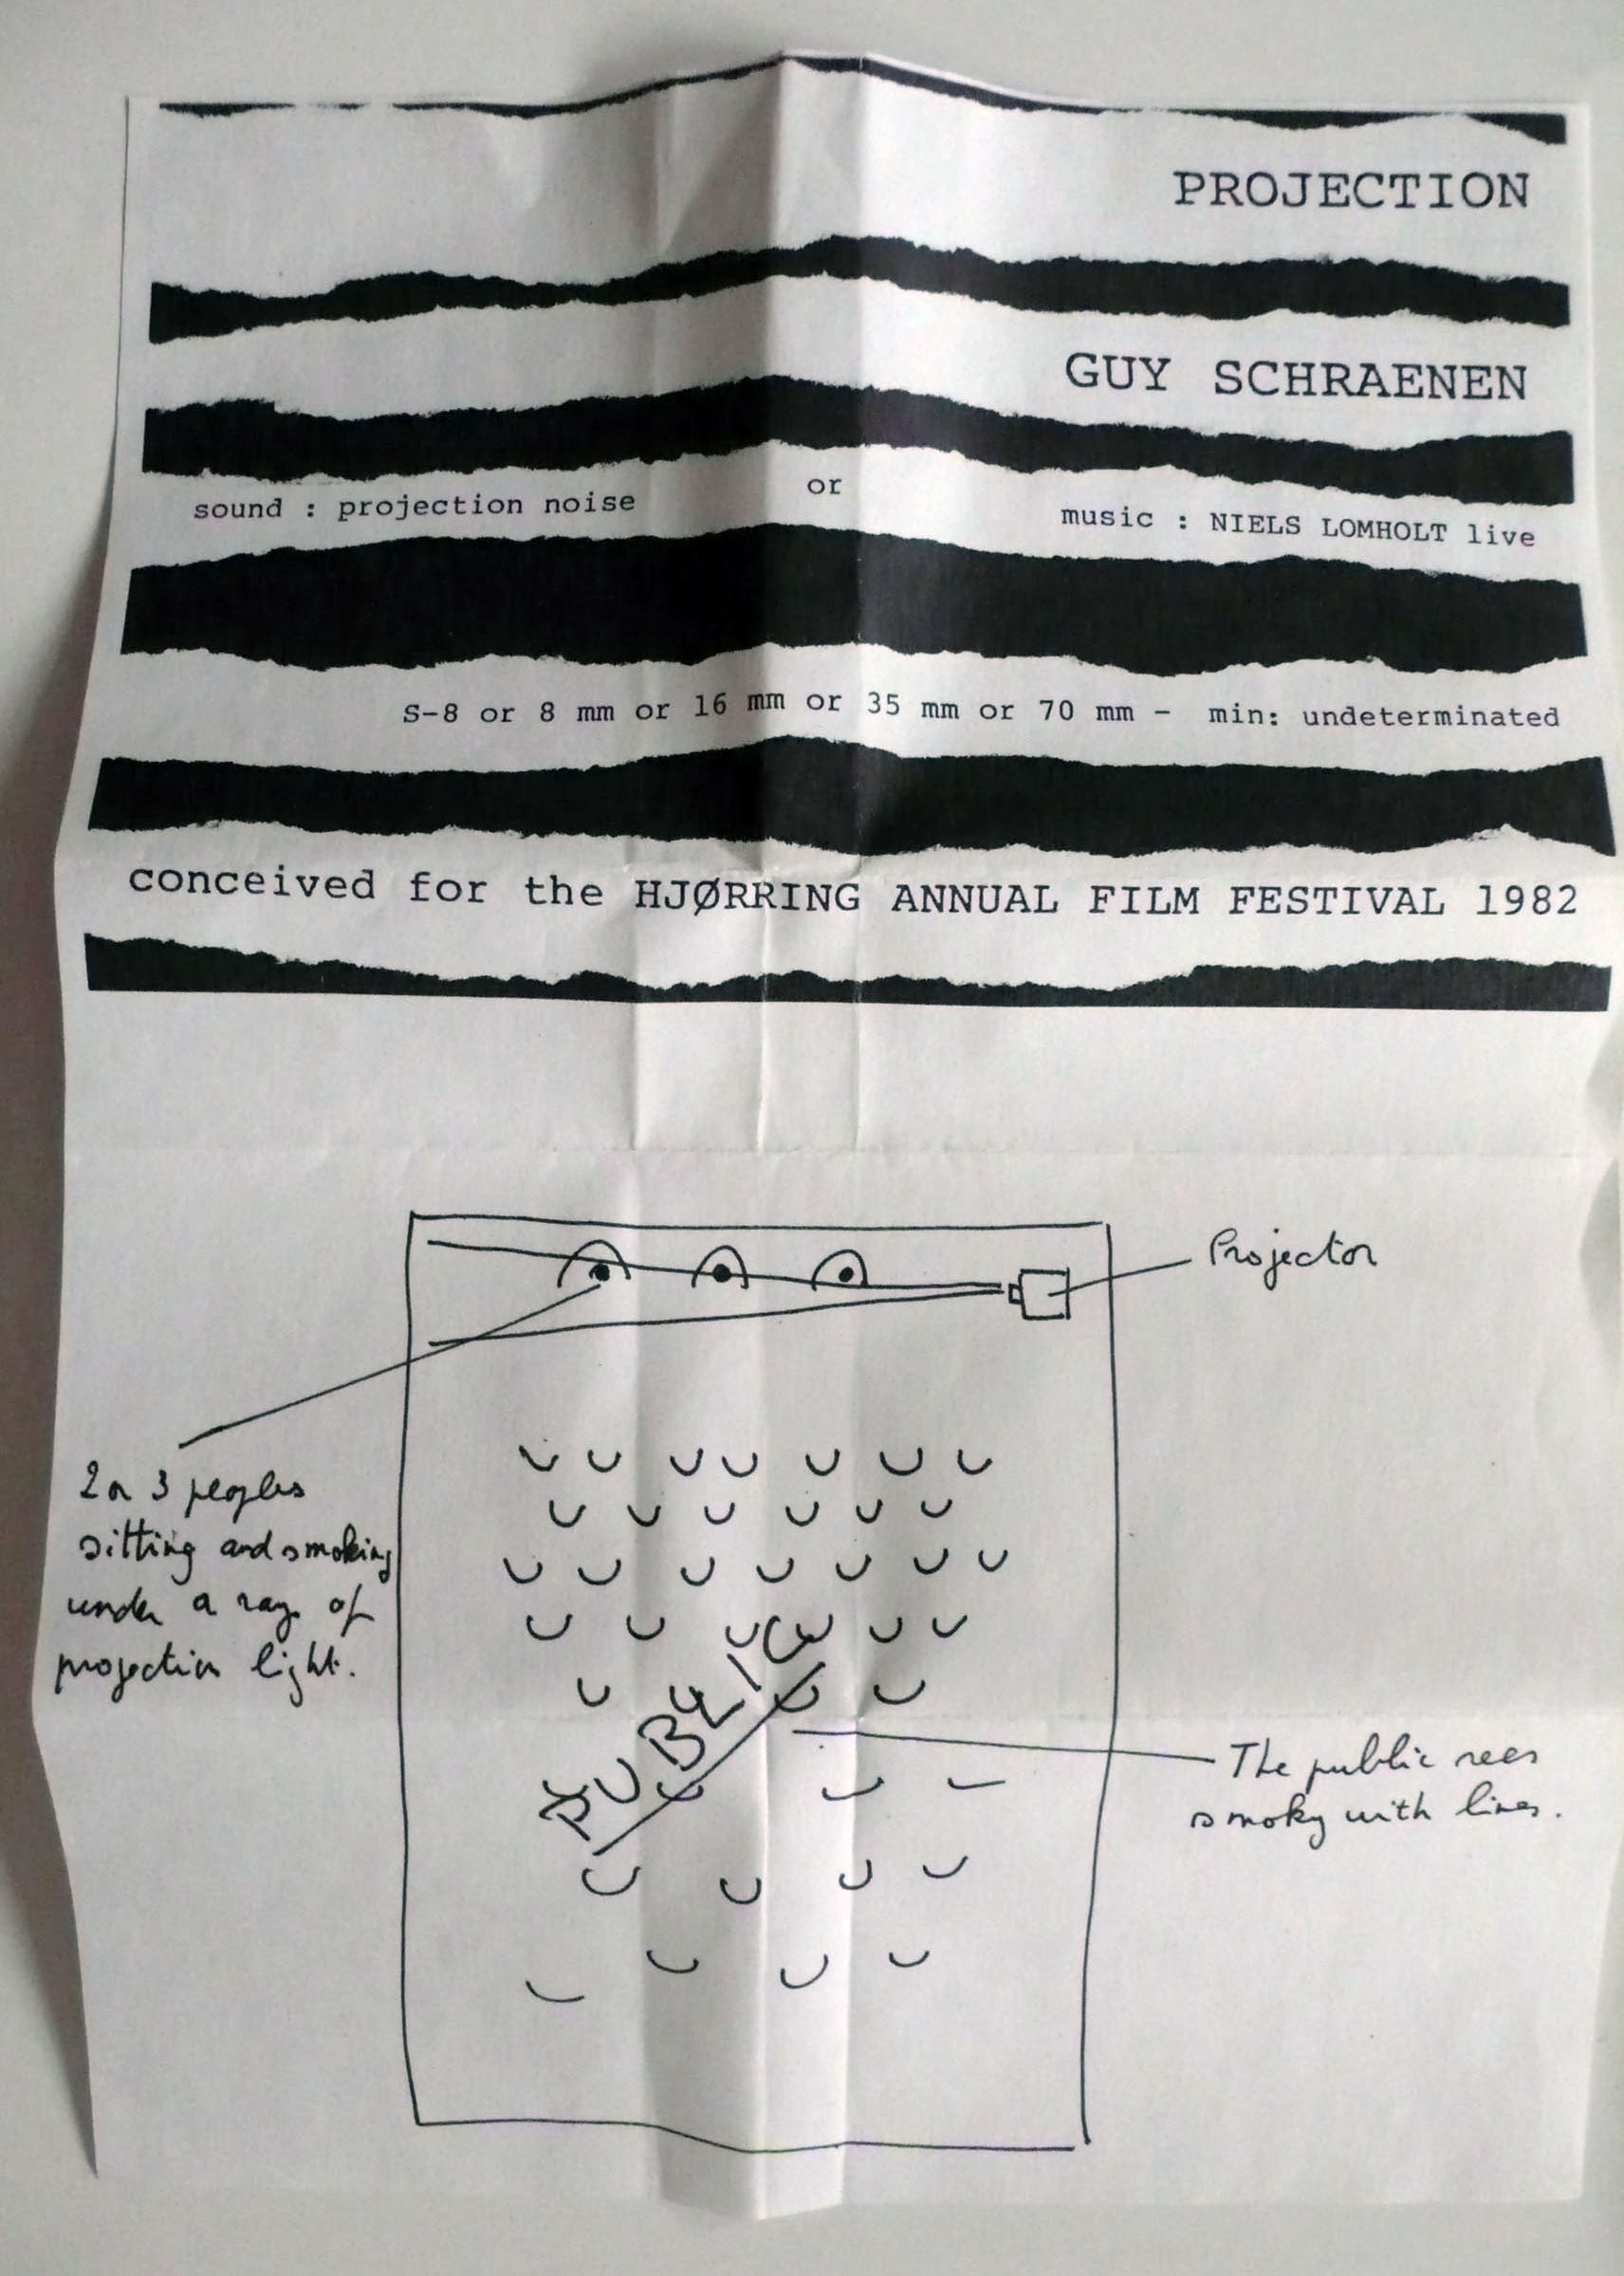 PROJECTION
GUY SCHRAENEN
sound : projection noise or music : NIELS LOMHOLT live
S-8 or 8 mm or 16 mm or 35 mm or 70 mm - min: undeterminated
conceived for the HJØRRING ANNUAL FILM FESTIVAL 1982
Projector
2 or 3 peoples
sitting and smoking
under a ray of
projection light.
PUBLIC
The public sees
smoky with lines.